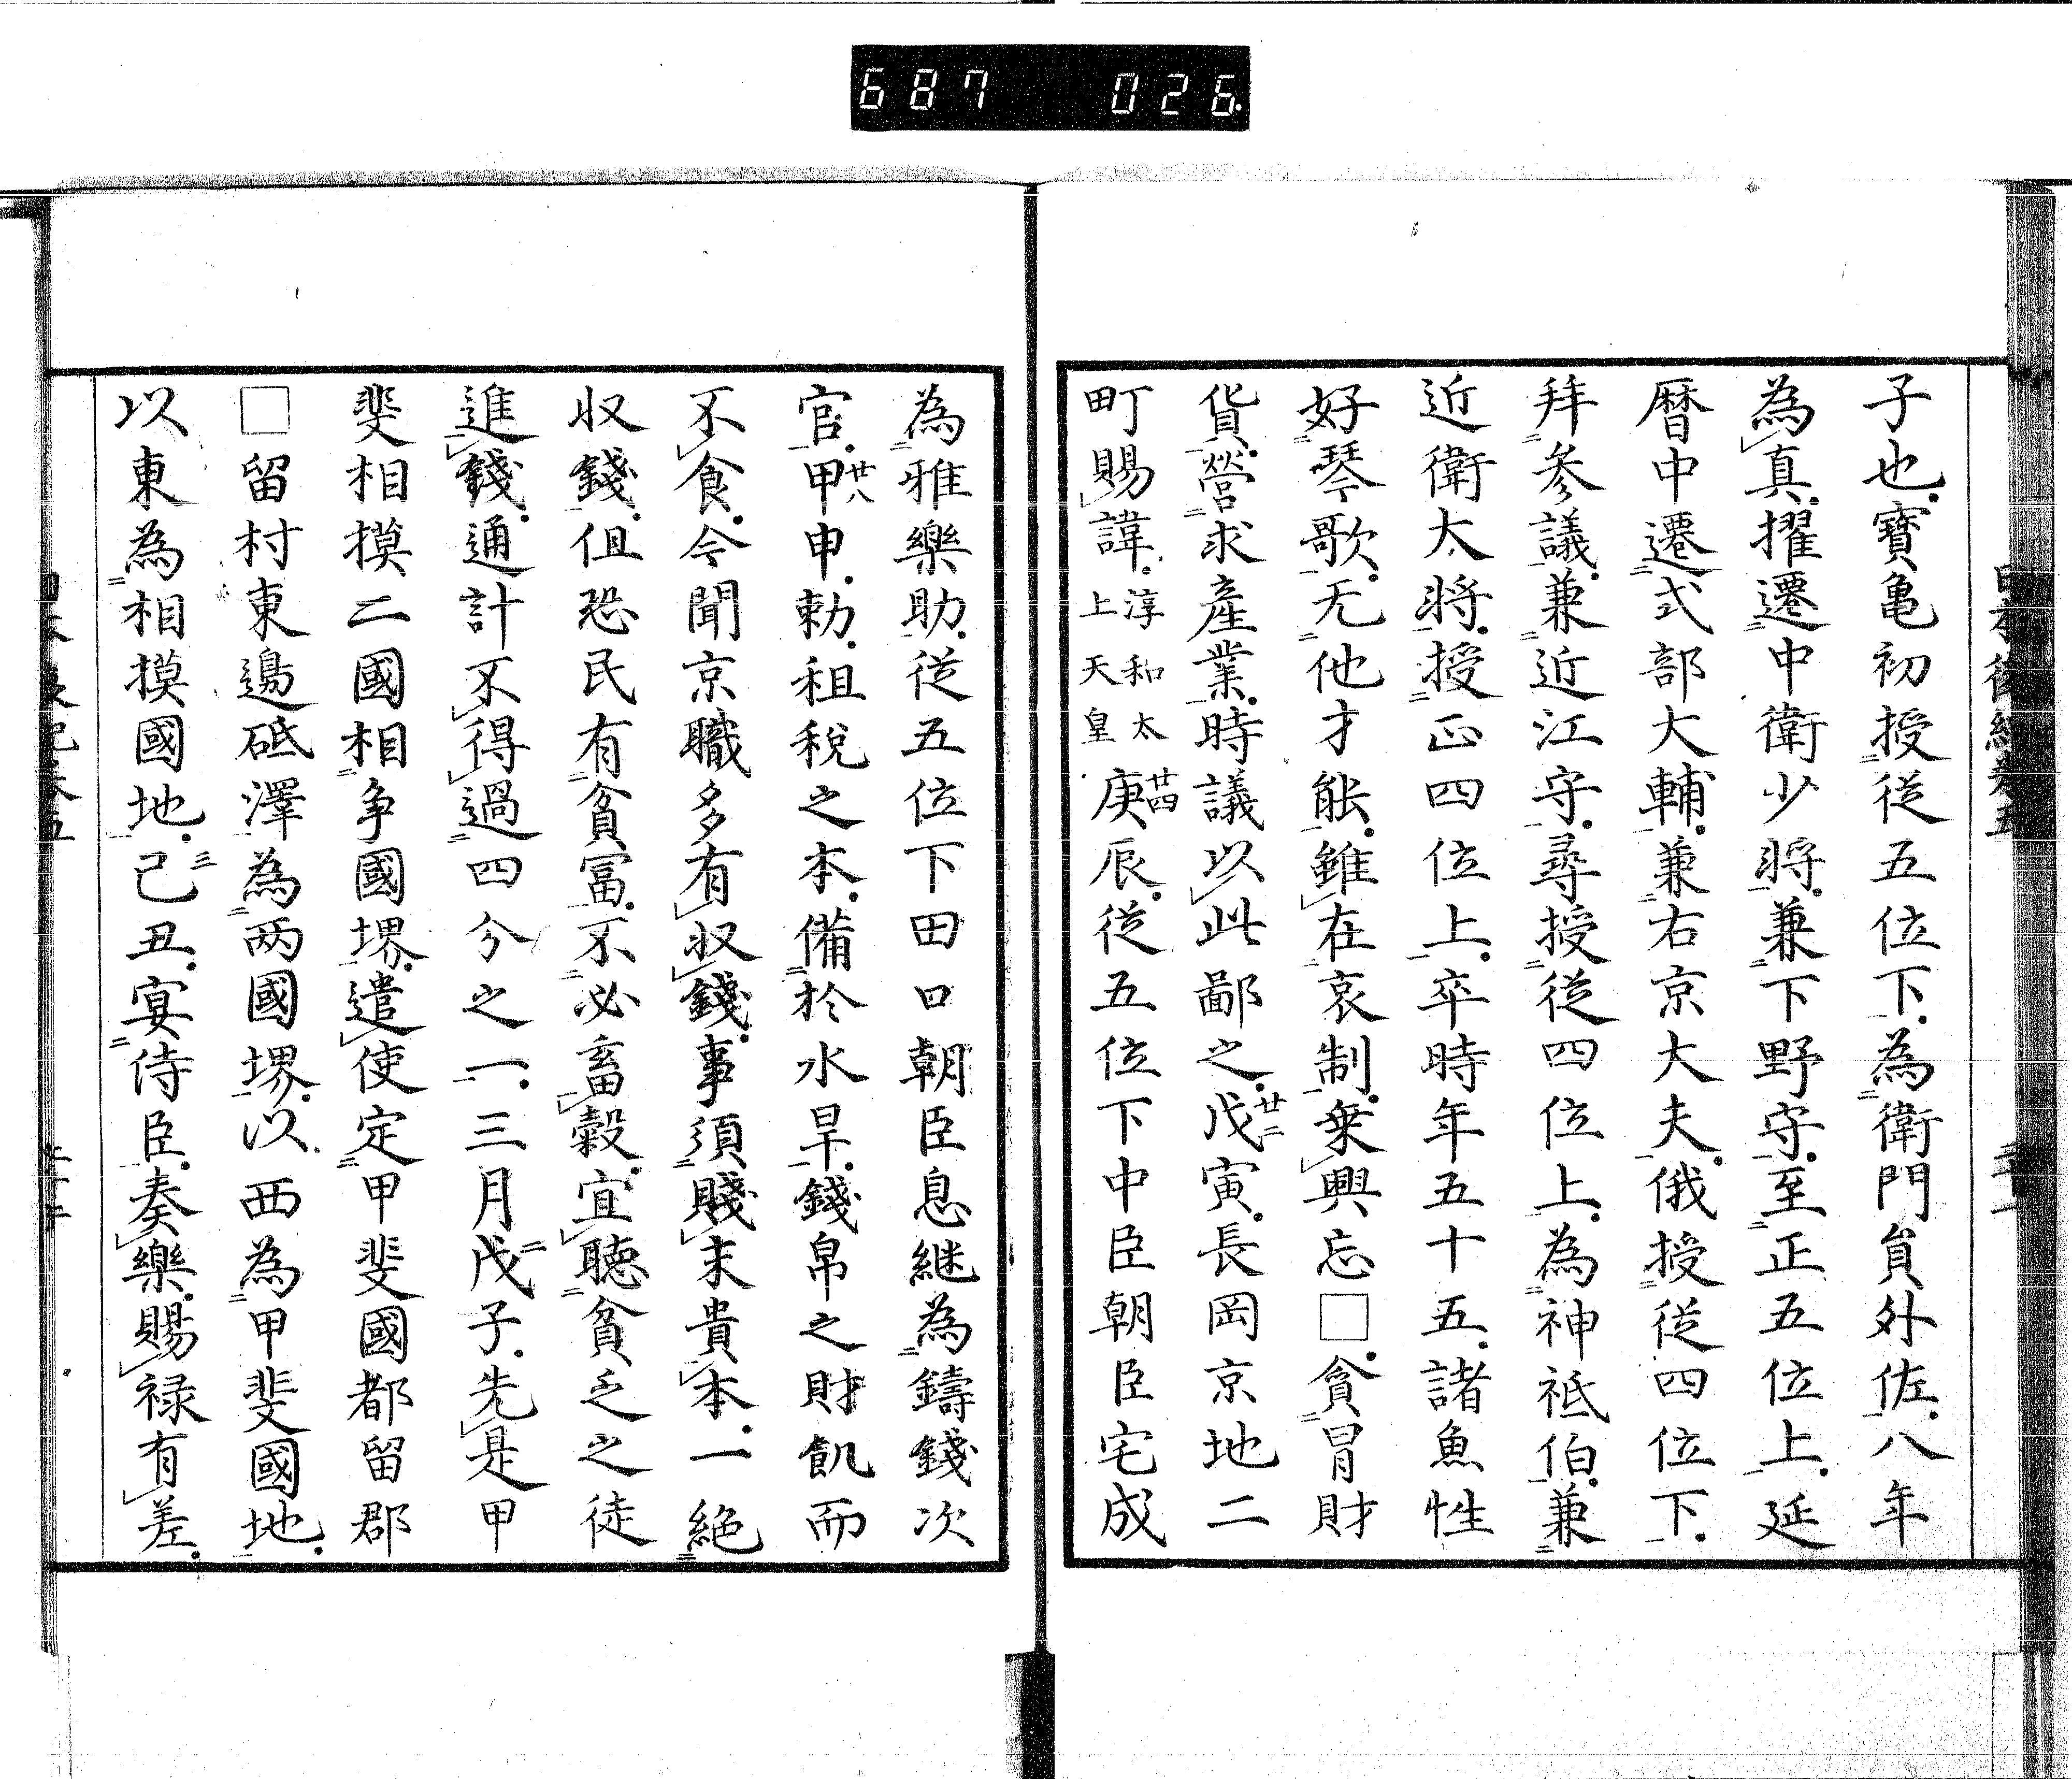 687 026
子也寶亀初授從五位下為衛門負外佐八年
為真擢遷中衛少将兼下野守至正五位上延
暦中遷式部大輔兼右京大夫俄授從四位下
拜参議兼近江守尋授從四位上為神祇伯兼
近衛大将授正四位上卒時年五十五諸魚性
好琴歌无他才能雖在哀制乗興忘□貪冒財
貨營求産業時議以此鄙之戊寅廿二長岡京地二
町賜諱淳和太上天皇庚辰廿四從五位下中臣朝臣宅成
為雅樂助從五位下田口朝臣息継為鑄錢次
官甲申廿八勅租税之本備於水旱錢帛之財飢而
不食今聞京職多有収錢事須賤末貴本一絶
収錢但恐民有貧冨不必畜穀宜聴貧乏之徒
進錢通計不得過四分之一三月戊子二先是甲
斐相摸二國相争國堺遣使定甲斐國都留郡
□留村東邊砥澤為两國堺以西為甲斐國地
以東為相摸國地己丑三宴侍臣奏樂賜禄有差